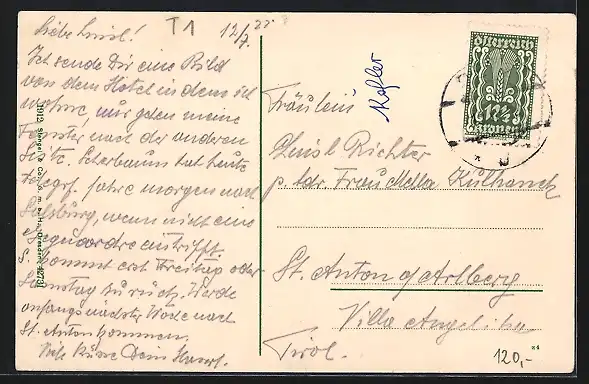 T1
12/7. 22
Liebe Liesl!
Ich sende Dir eine Bild
von dem Hotel in dem ich
wohne, nur gehen meine
Fenster nach der anderen
Seite. Scherbaum hat heute
telegrf. fahre morgen nach
Salzburg, wenn nicht eine
Gegenordre eintrifft.
S. kommt erst Freitag oder
Samstag zurück. Werde
anfangs nächster Woche nach
St. Anton kommen.
Viele Küsse Dein
Österreich
12½
Kronen
Fräulein
Liesl Richter
p. Adr. Frau Della
St. Anton a/Arlberg
Villa Angelika
Tirol.
120,-